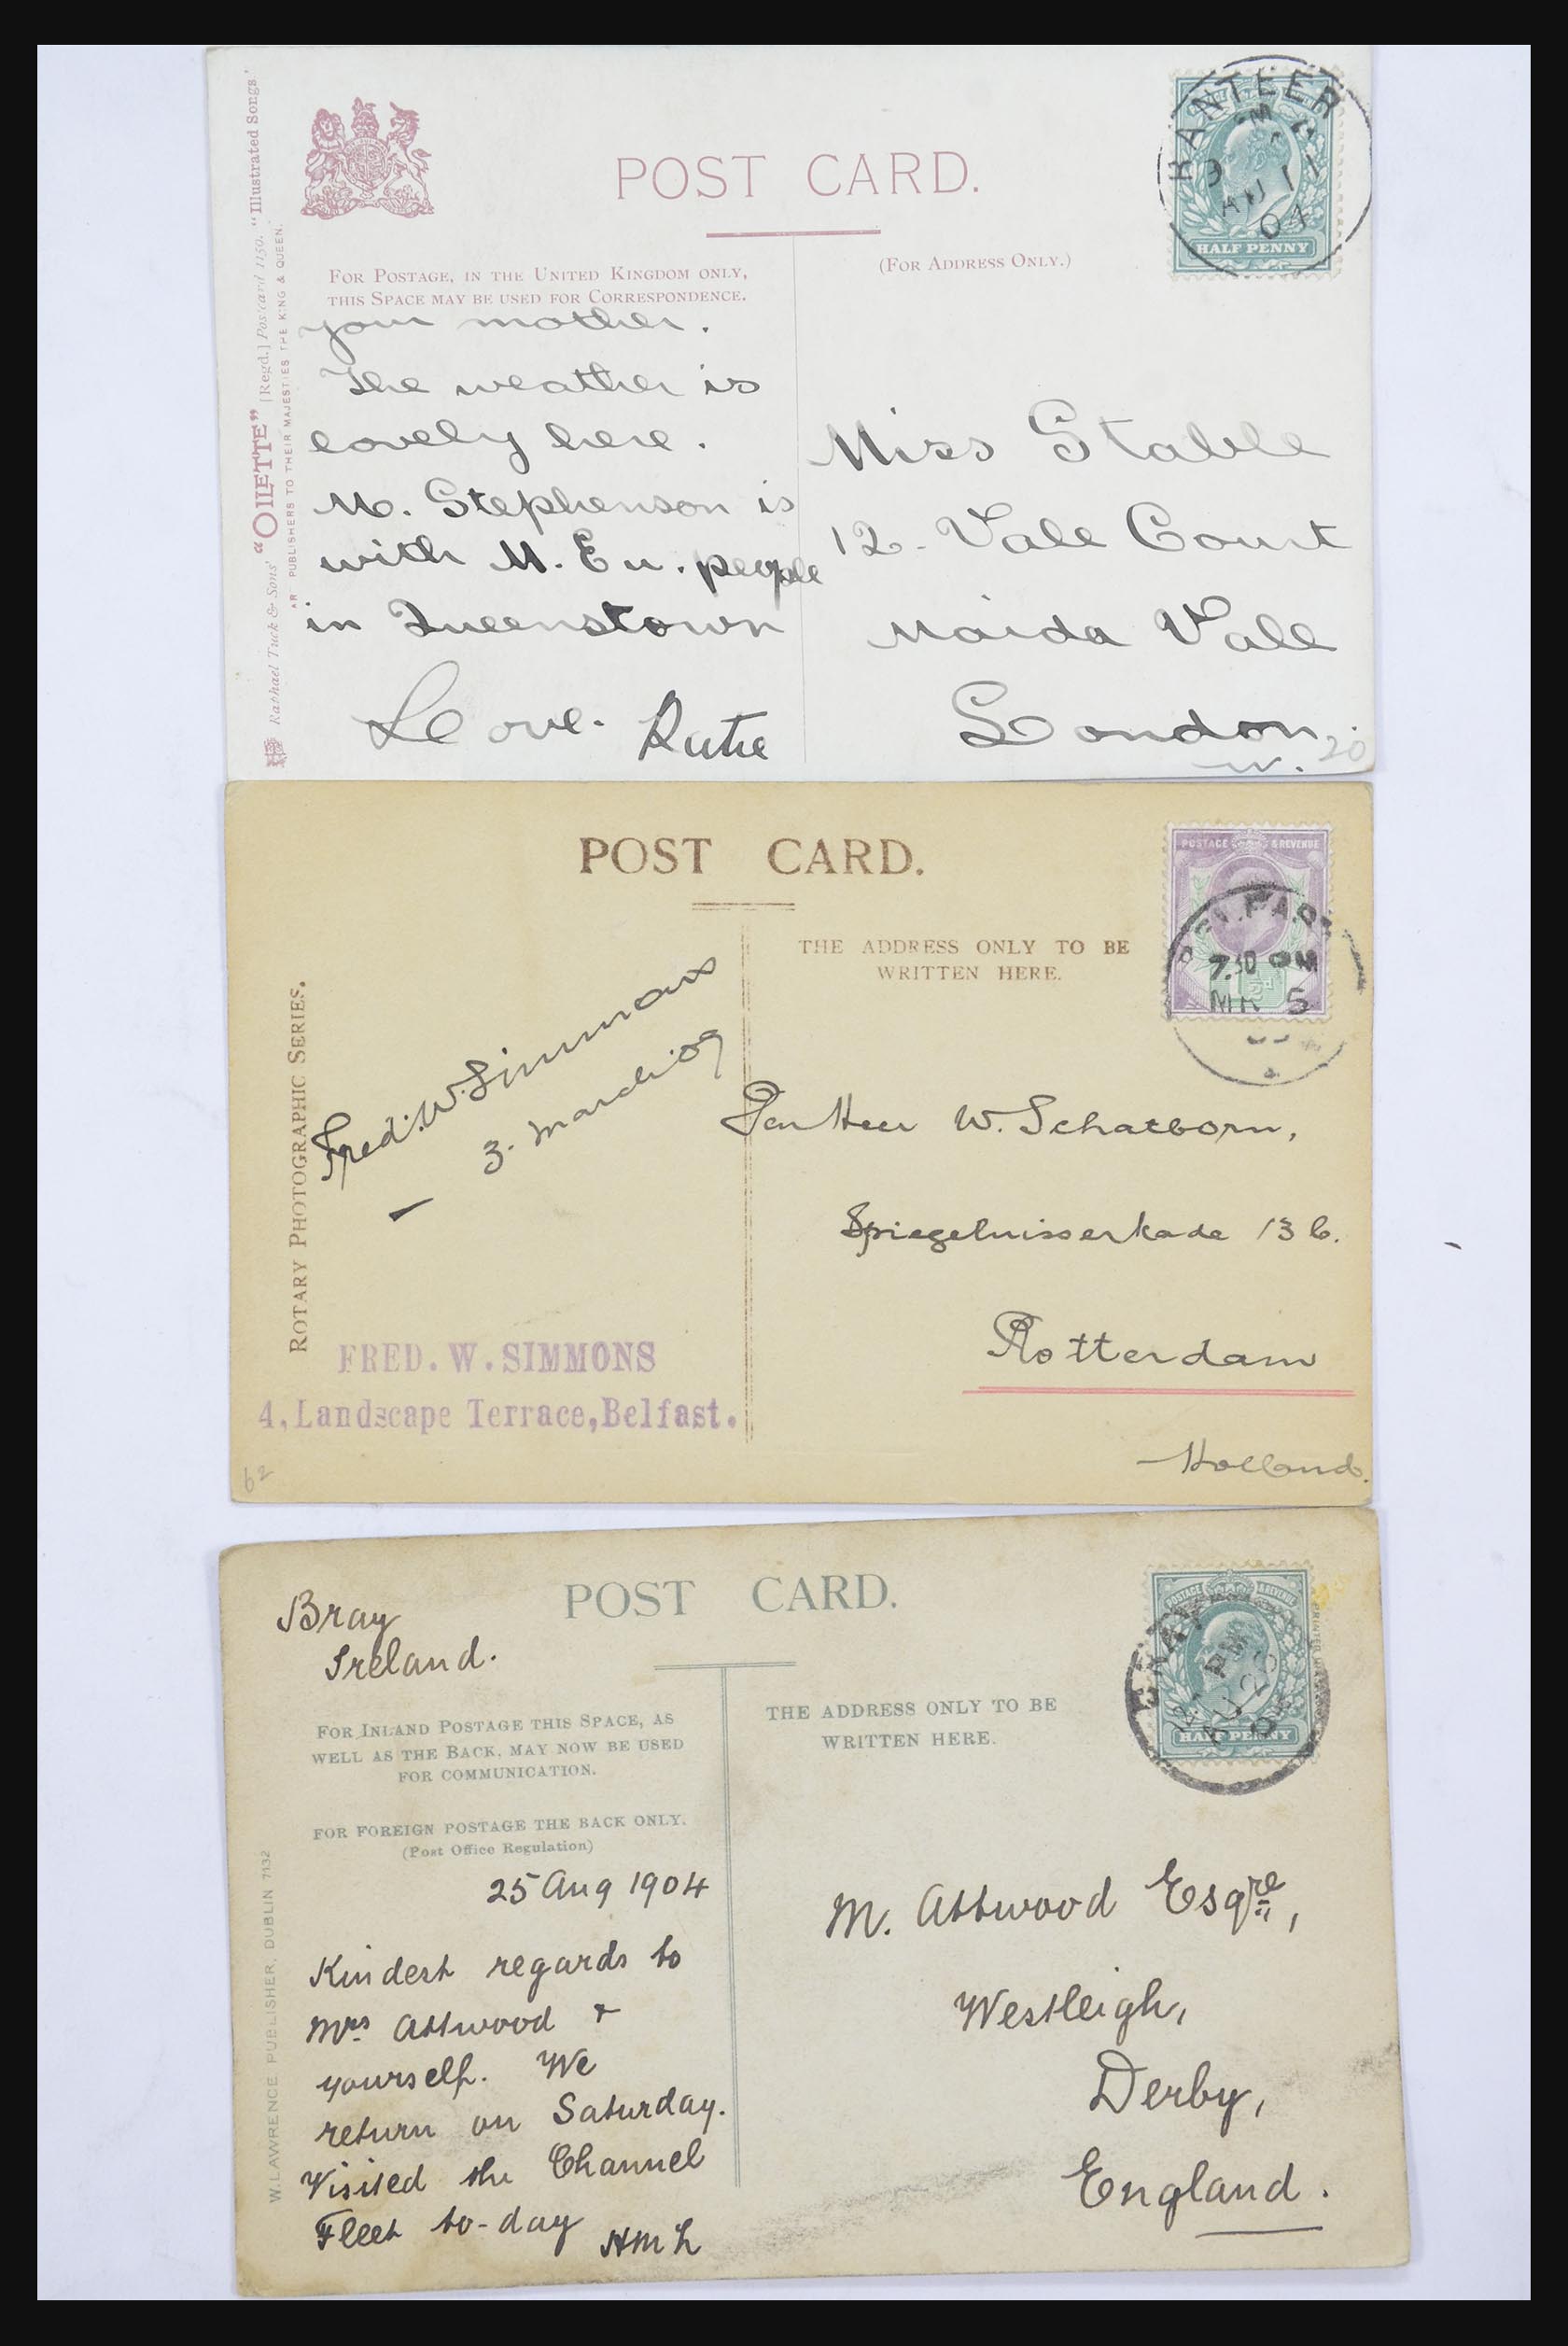 POST CARD.
FOR POSTAGE, IN THE UNITED KINGDOM ONLY,
THIS SPACE MAY BE USED FOR CORRESPONDENCE.
(FOR ADDRESS ONLY.)
RANTEER
AU 11
04
HALF PENNY
Raphael Tuck & Sons' "OILETTE" [Regd.] Postcard 1150. "Illustrated Songs."
PUBLISHERS TO THEIR MAJESTIES THE KING & QUEEN.
your mother.
The weather is
lovely here.
M. Stephenson is
with M. Eu. people
in Queenstown
Love. Katie
Miss Stable
12 - Vale Court
Maida Vale
London.
W.
20
POST CARD.
THE ADDRESS ONLY TO BE
WRITTEN HERE.
POSTAGE & REVENUE
BELFAST
7.30 PM
MR 5
ROTARY PHOTOGRAPHIC SERIES.
Fred. W. Simmons
3. March. 09
FRED. W. SIMMONS
4, Landscape Terrace, Belfast.
62
Den Heer W. Schatborn,
Spiegelnisserkade 13 b.
Rotterdam
Holland.
POST CARD.
Bray
Ireland.
FOR INLAND POSTAGE THIS SPACE, AS
WELL AS THE BACK, MAY NOW BE USED
FOR COMMUNICATION.
FOR FOREIGN POSTAGE THE BACK ONLY.
(Post Office Regulation)
THE ADDRESS ONLY TO BE
WRITTEN HERE.
POSTAGE & REVENUE
BRAY
PM
AU 26
04
HALF PENNY
W. LAWRENCE PUBLISHER, DUBLIN 7132
25 Aug 1904
Kindest regards to
Mrs Attwood &
yourself. We
return on Saturday.
Visited the Channel
Fleet to-day HMH
M. Attwood Esqre,
Westleigh,
Derby,
England.